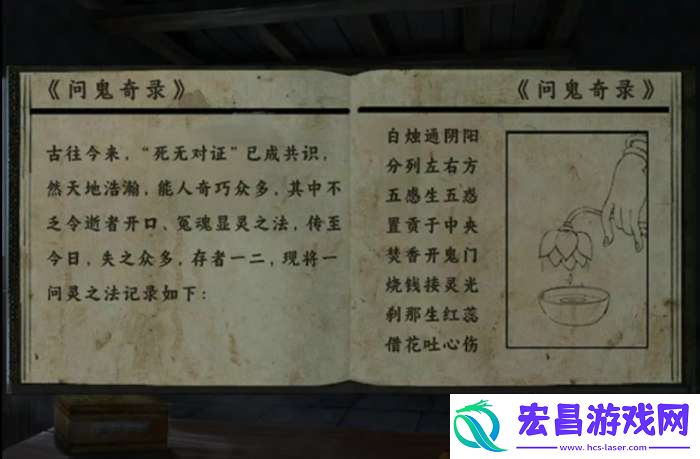 《问鬼奇录》
古往今来，“死无对证”已成共识，
然天地浩瀚，能人奇巧众多，其中不
乏令逝者开口、冤魂显灵之法，传至
今日，失之众多，存者一二，现将一
问灵之法记录如下：
《问鬼奇录》
白烛通阴阳
分列左右方
五感生五惑
置贡于中央
焚香开鬼门
烧钱接灵光
刹那生红蕊
借花吐心伤
宏昌游戏网
www.hcs-laser.com